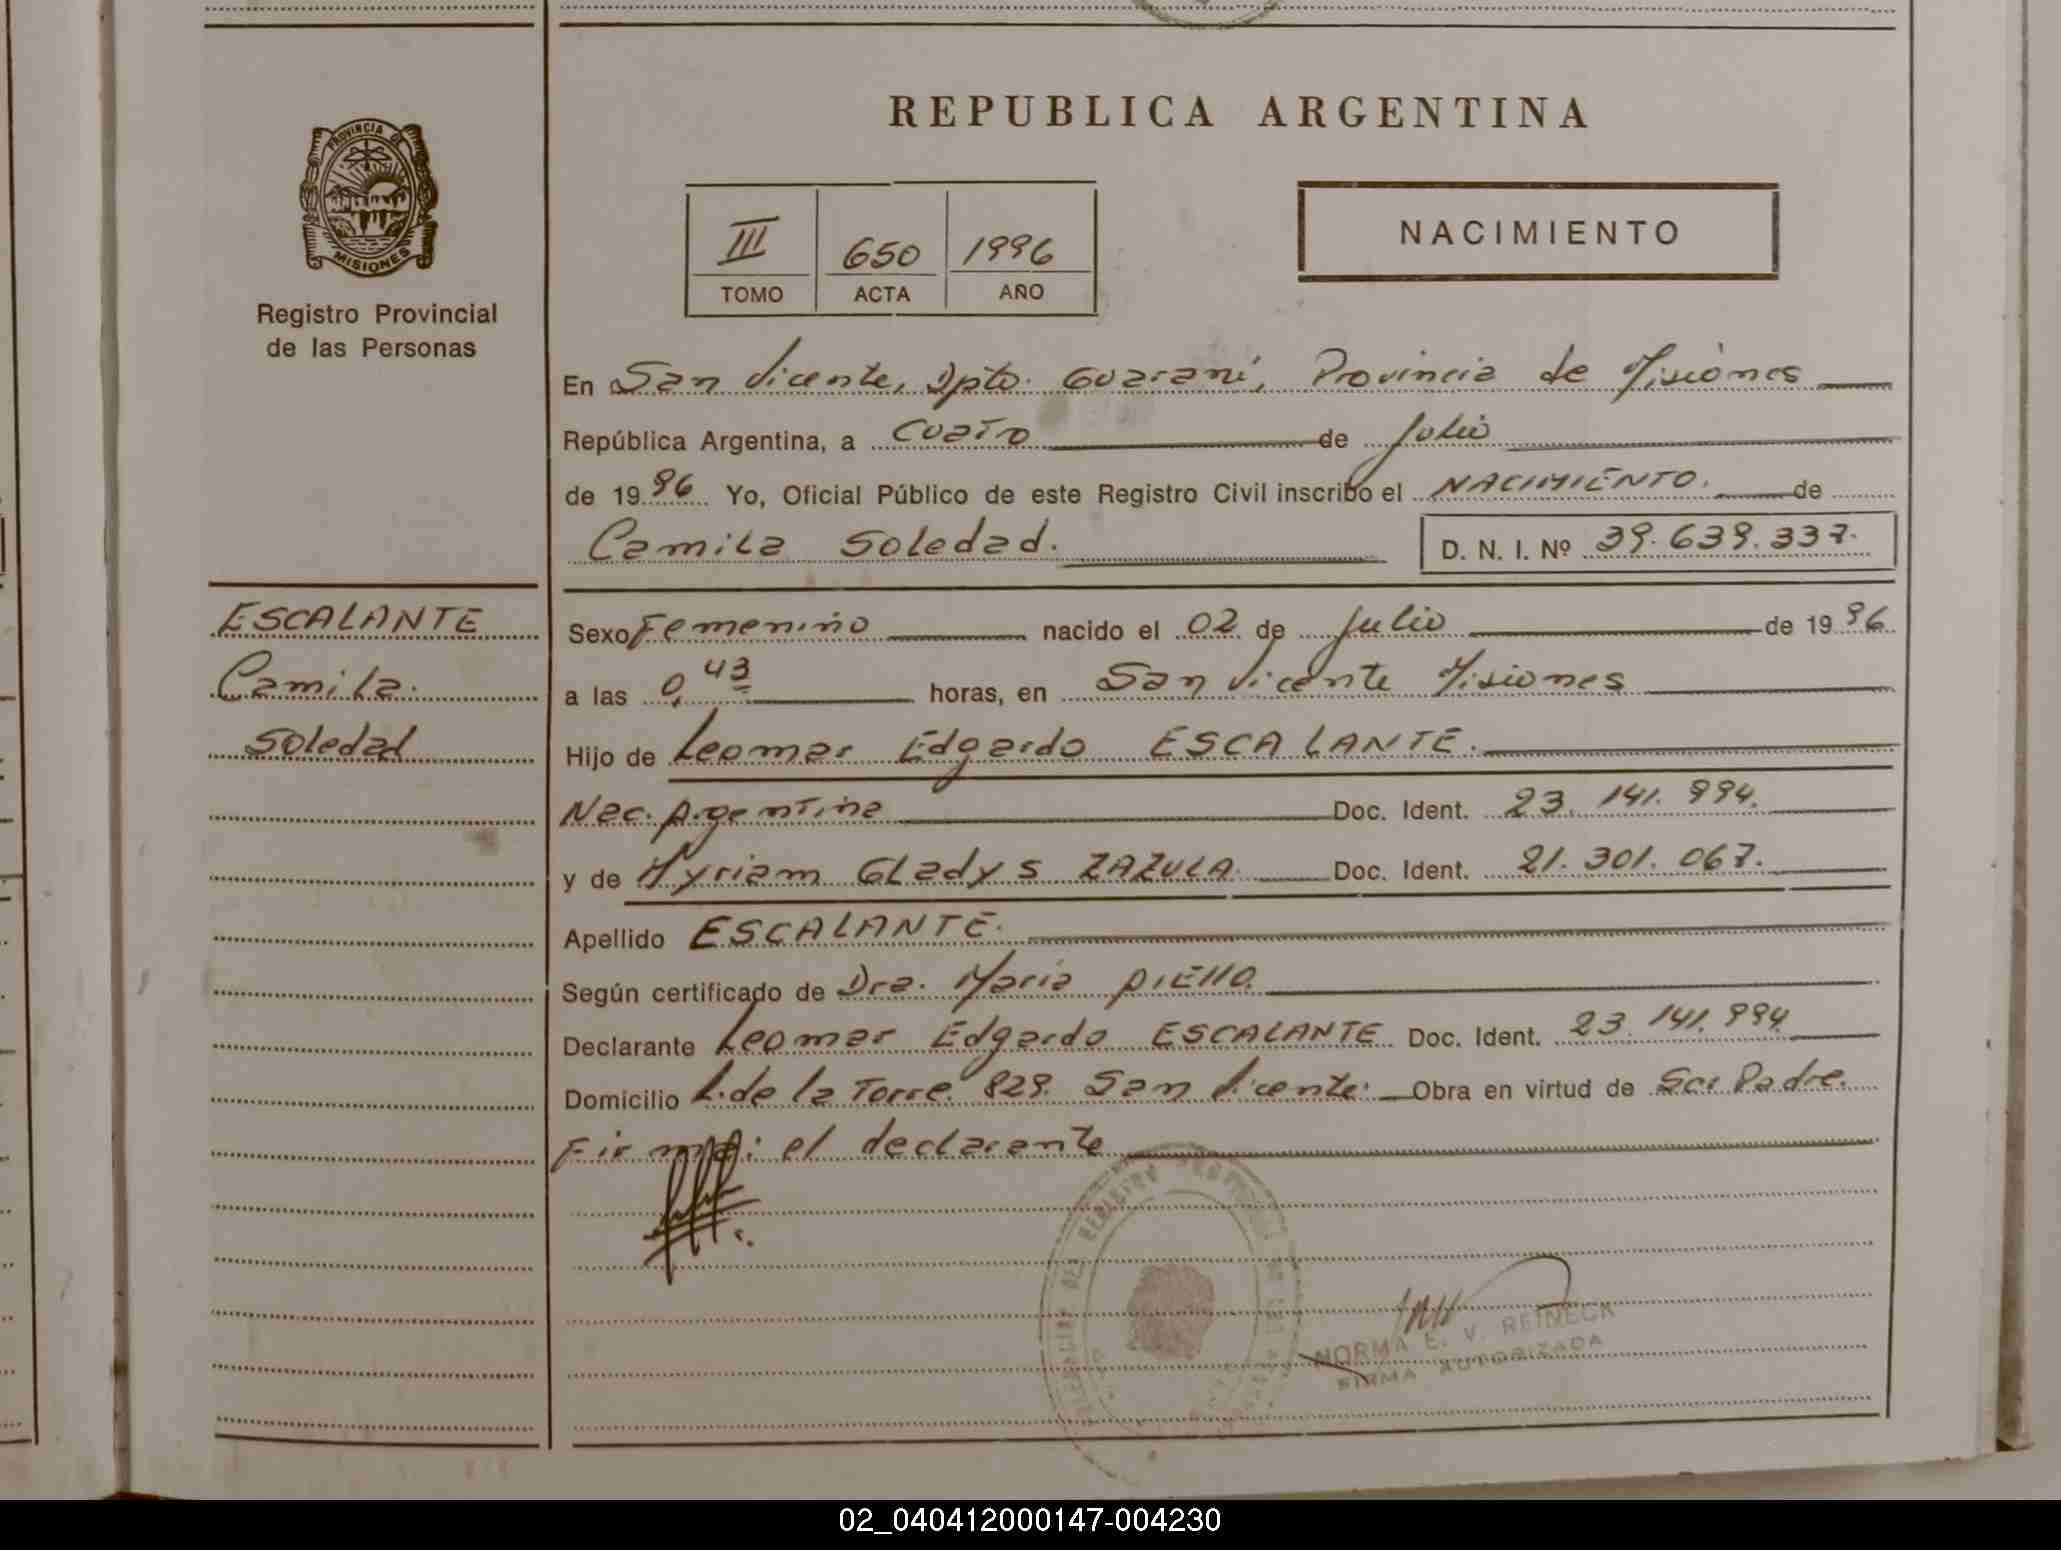 REPUBLICA ARGENTINA
PROVINCIA DE
MISIONES
Registro Provincial
de las Personas
III 650 1996
TOMO ACTA AÑO
NACIMIENTO
En San Vicente, Dpto. Guaraní, Provincia de Misiones
República Argentina, a Cuatro de Julio
de 1996 Yo, Oficial Público de este Registro Civil inscribo el NACIMIENTO. de
Camila Soledad. D. N. I. Nº 39.639.337.
ESCALANTE
Camila
Soledad
Sexo Femenino nacido el 02 de Julio de 1996
a las 0,43 horas, en San Vicente Misiones
Hijo de Leomar Edgardo ESCALANTE.
Nac. Argentina Doc. Ident. 23.141.994.
y de Myriam Gladys ZAZULA Doc. Ident. 21.301.067.
Apellido ESCALANTE.
Según certificado de Dra. Maria
Declarante Leomar Edgardo ESCALANTE Doc. Ident. 23.141.994
Domicilio L. de la Torre. 829. San Vicente. Obra en virtud de Ser Padre.
Firma: el declarante
NORMA E. V. REINECK
FIRMA AUTORIZADA
02_040412000147-004230